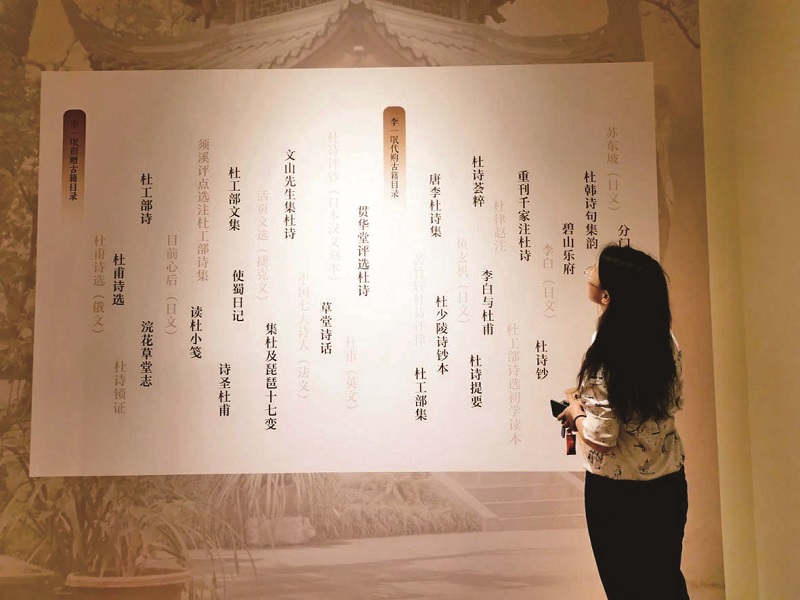 李一氓捐赠古籍目录
杜甫诗选（俄文）
杜甫诗选
杜诗锁证
杜工部诗
浣花草堂志
目前心后（日文）
读杜小笺
须溪评点选注杜工部诗集
诗圣杜甫
杜工部文集
使蜀日记
活页文选（捷克文）
集杜及琵琶十七变
文山先生集杜诗
中国七大诗人（法文）
草堂诗话
杜诗评钞
杜甫（英文）
贯华堂评选杜诗
李一氓代购古籍目录
苦竹轩杜诗评律
杜工部集
唐李杜诗集
杜少陵诗钞本
鱼玄机（日文）
杜诗荟粹
杜诗提要
李白与杜甫
杜律赵注
杜工部诗选初学读本
重刊千家注杜诗
杜诗钞
李白（日文）
碧山乐府
杜韩诗句集韵
苏东坡（日文）
分门